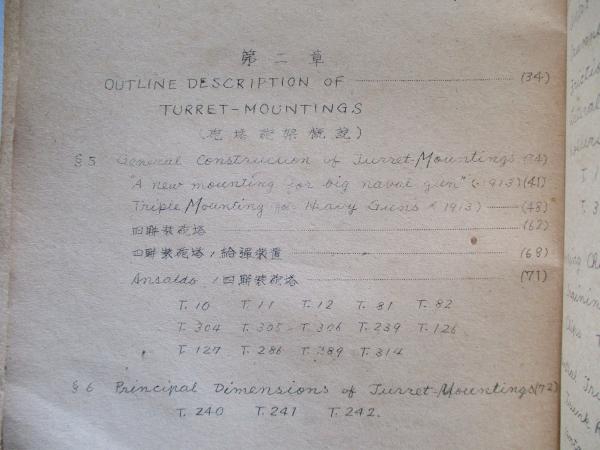 第二章
OUTLINE DESCRIPTION OF (34)
TURRET-MOUNTINGS
(砲塔砲架概説)
§5 General Construction of Turret-Mountings (34)
"A new mounting for big naval gun" (1913) (41)
Triple Mounting for Heavy Guns (1913) (48)
四聯装砲塔 (62)
四聯装砲塔ノ給弾装置 (68)
Ansaldo ノ四聯装砲塔 (71)
T. 10 T. 11 T. 12 T. 81 T. 82
T. 304 T. 305 T. 306 T. 239 T. 126
T. 127 T. 286 T. 289 T. 314
§6 Principal Dimensions of Turret-Mountings (72)
T. 240 T. 241 T. 242.